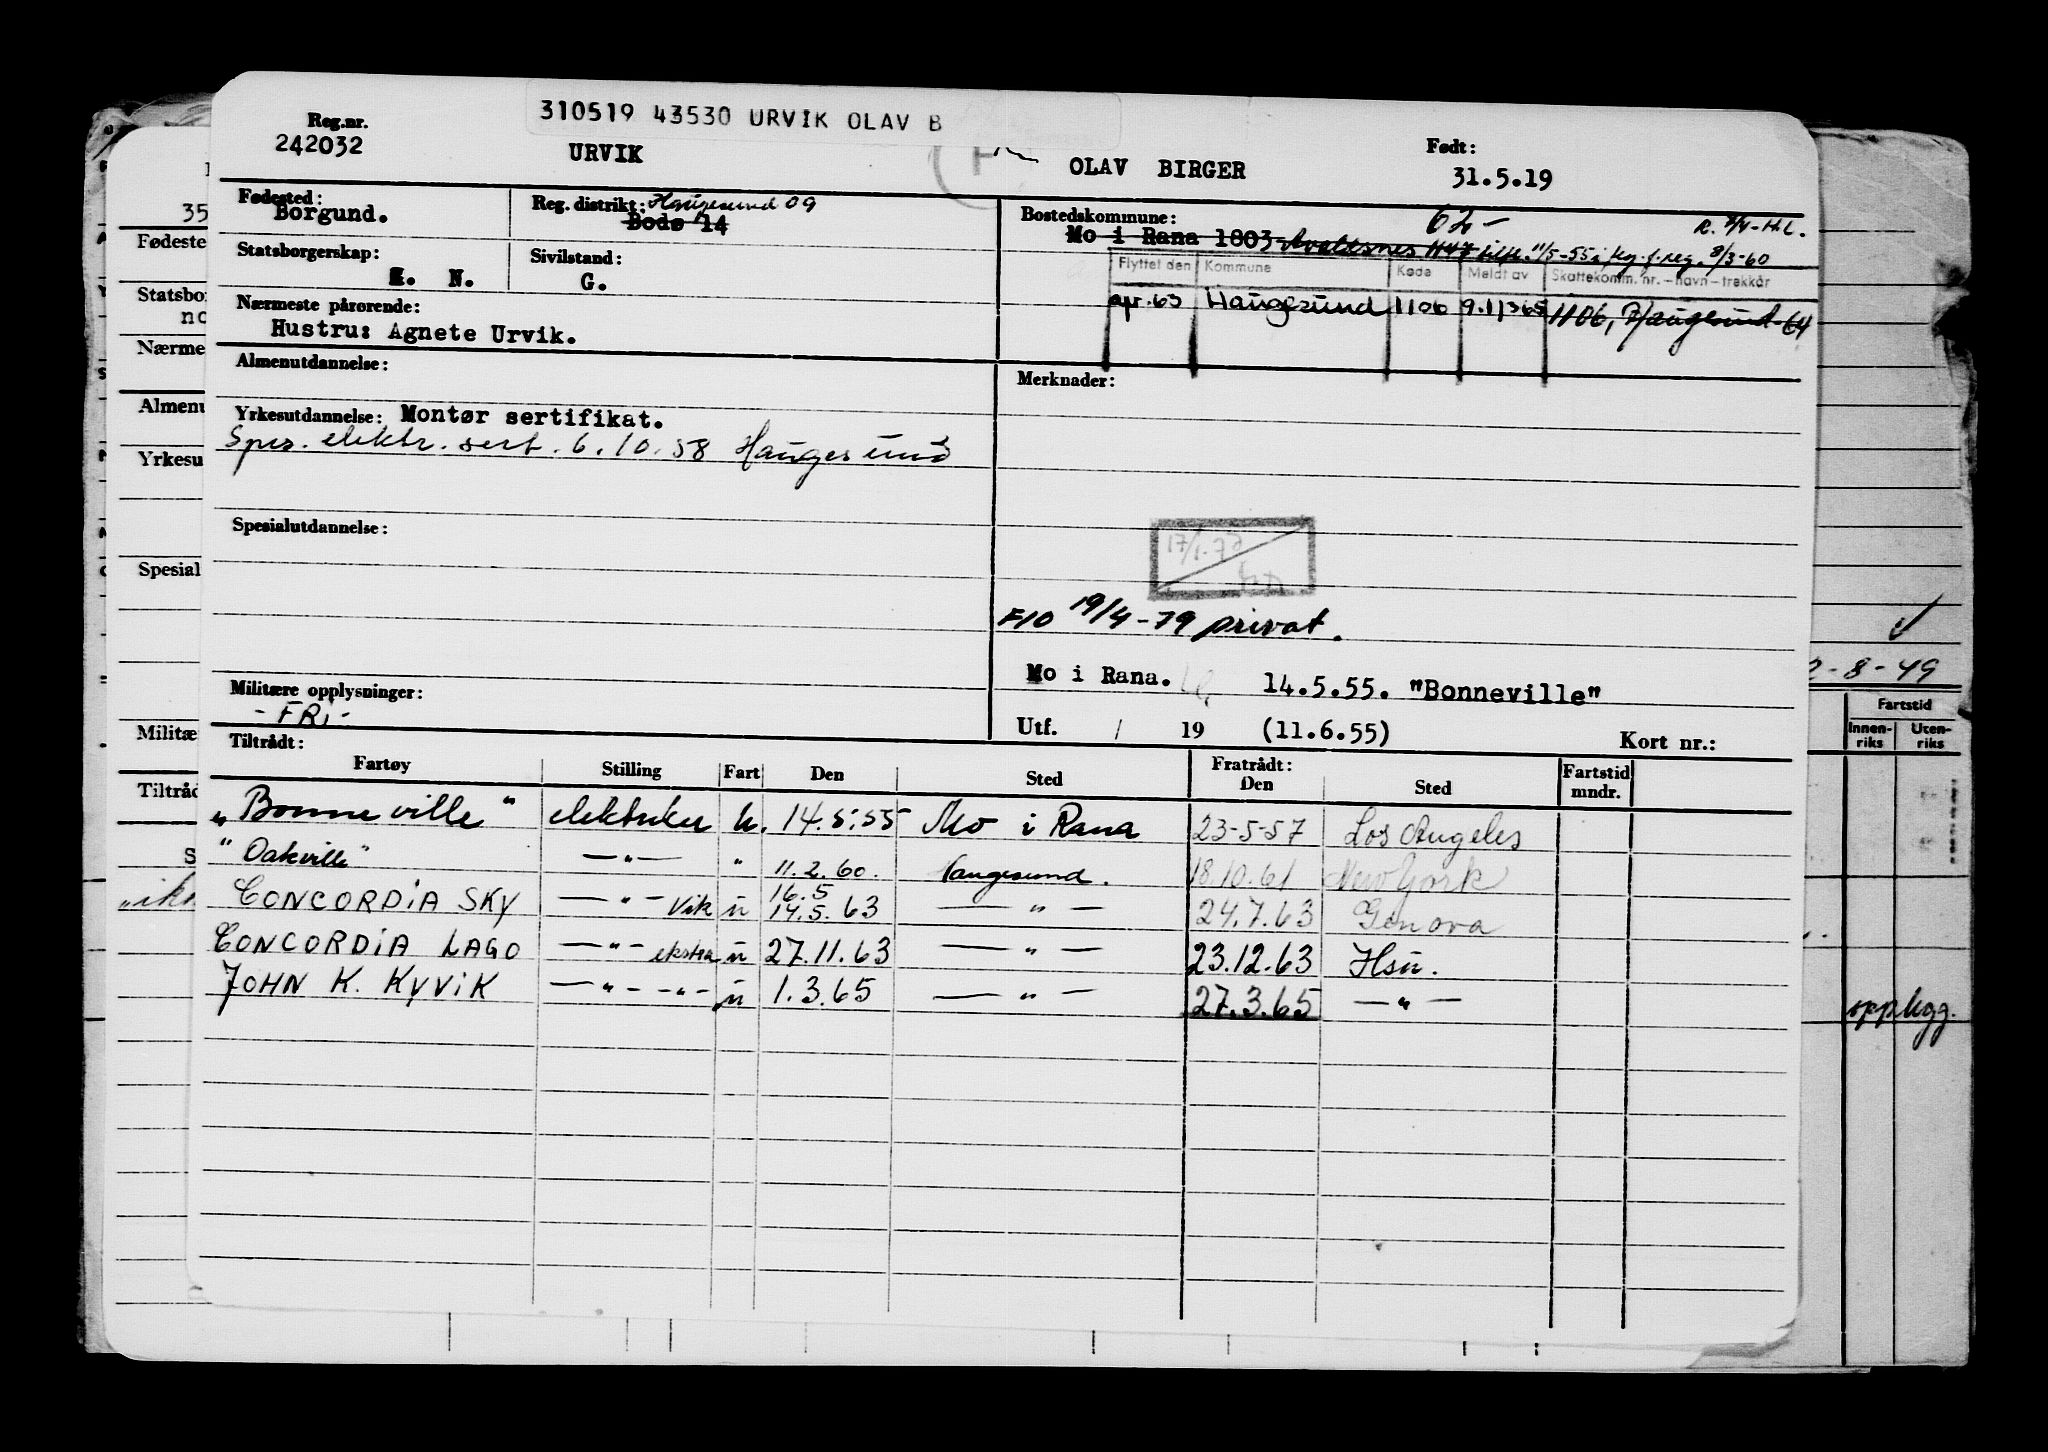 310519 43530 URVIK OLAV B
Reg.nr.
242032
URVIK
OLAV BIRGER
Født:
31.5.19
Fødested:
Borgund.
Reg. distrikt: Haugesund 09
Bodø 14
Bostedskommune:
62-
Mo i Rana 1803 Avaldsnes 1147 11/5-55 i reg. 8/3-60
Statsborgerskap:
N.
Sivilstand:
G.
Flyttet den Kommune Kode Meldt av Skattekomm. nr. – navn – trekkår
apr. 63 Haugesund 1106 1106, Haugesund-64
Nærmeste pårørende:
Hustru: Agnete Urvik.
Almenutdannelse:
Merknader:
Yrkesutdannelse: Montør sertifikat.
Spes. elektr. sert. 6.10.58 Haugesund
Spesialutdannelse:
17/1-77
F10 19/4-79 privat.
Mo i Rana. 14.5.55. "Bonneville"
Militære opplysninger:
- FRi -
Utf. / 19 (11.6.55)
Kort nr.:
Tiltrådt:
Fartøy Stilling Fart Den Sted
Fratrådt:
Den Sted
Fartstid
mndr.
"Bonneville" elektriker u. 14.5.55 Mo i Rana 23-5-57 Los Angeles
"Oakville" — " — " 11.2.60. Haugesund. 18.10.61 New York
CONCORDiA SKY — " — vik u 16.5 14.5.63 — " — 24.7.63 Genova
CONCORDiA LAGO — " — ekstra u 27.11.63 — " — 23.12.63 Hsu.
JOHN K. KYViK — " — - " - u 1.3.65 — " — 27.3.65 — " —
35
Fødeste
Statsbo
no
Nærme
Almenu
Yrkesu
Spesial
Militæ
Tiltråd
2-8-49
Fartstid
Innen-
riks
Uten-
riks
opplegg.